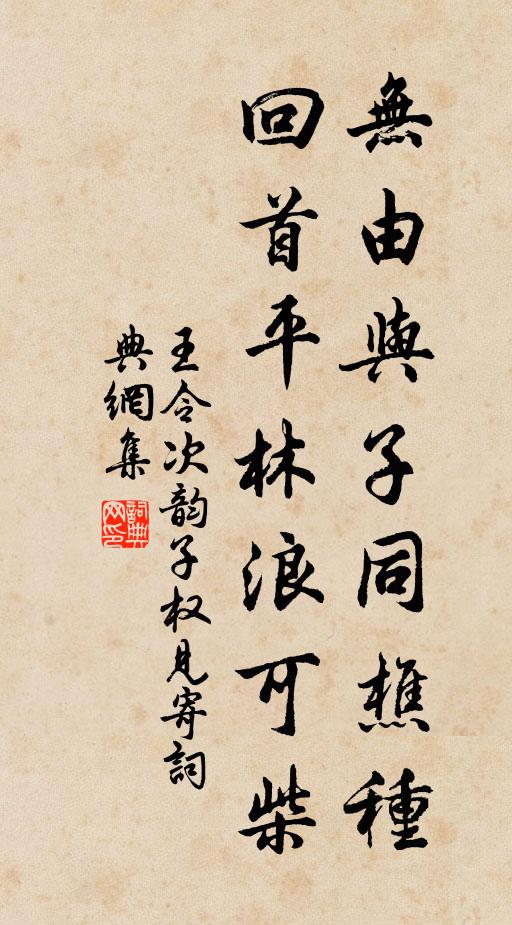 無由與子同樵種
回首平林浪可柴
王令次韵子权見寄詞
典網集
詞典网印